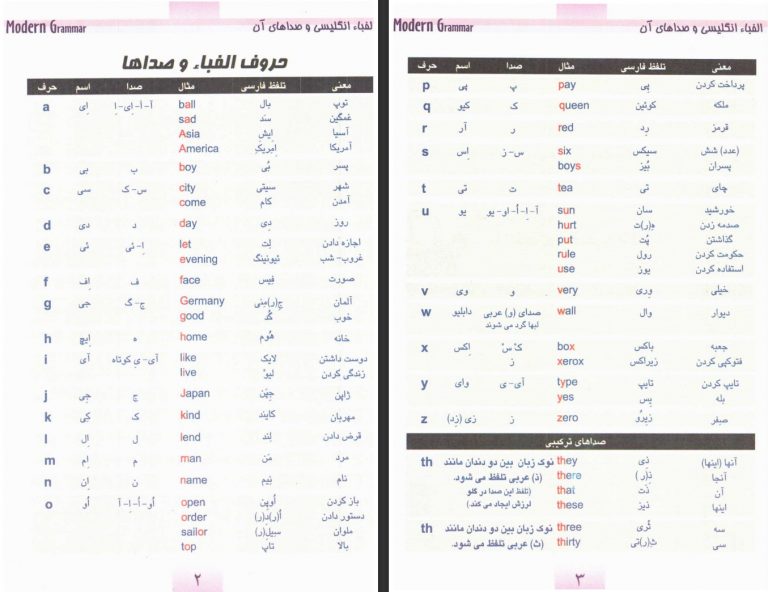 Modern Grammar
الفباء انگلیسی و صداهای آن
حروف الفباء و صداها
حرف اسم صدا مثال تلفظ فارسی معنی
a اِی آ-اَ-اِی-اِ ball بال توپ
sad سَد غمگین
Asia اِیش آسیا
America اِمِریکِ آمریکا
b بی ب boy بُی پسر
c سی س-ک city سیتی شهر
come کام آمدن
d دی د day دِی روز
e ئی اِ-ئی let لِت اجازه دادن
evening ئیونینگ غروب-شب
f اِف ف face فِیس صورت
g جی ج-گ Germany جِ(ر)مِنی آلمان
good گُد خوب
h اِیچ ه home هُوم خانه
i آی آی-یِ کوتاه like لایک دوست داشتن
live لیوْ زندگی کردن
j جِی ج Japan جِپَن ژاپن
k کِی ک kind کایند مهربان
l اِل ل lend لِند قرض دادن
m اِم م man مَن مرد
n اِن ن name نِیم نام
o اُو اُو-اُ-اِ-آ open اُوپِن باز کردن
order اُ(ر)دِ(ر) دستور دادن
sailor سِیلِ(ر) ملوان
top تاپ بالا
۲
Modern Grammar
الفباء انگلیسی و صداهای آن
حرف اسم صدا مثال تلفظ فارسی معنی
p پی پ pay پِی پرداخت کردن
q کیو ک queen کوئین ملکه
r آر ر red رِد قرمز
s اِس س-ز six سیکس (عدد) شش
boys بُیز پسران
t تی ت tea تی چای
u یو آ-اِ-اُ-او-یو sun سان خورشید
hurt هِ(ر)ت صدمه زدن
put پُت گذاشتن
rule رول حکومت کردن
use یوز استفاده کردن
v وی و very وِری خیلی
w دابلیو صدای (و) عربی wall وال دیوار
لبها گرد می شوند
x اِکس کْ سْ box باکس جعبه
ز xerox زیراکس فتوکپی کردن
y وای آی-ی type تایپ تایپ کردن
yes یِس بله
z زی (زِد) ز zero زیرُو صفر
صداهای ترکیبی
th نوک زبان بین دو دندان مانند they ذِی آنها (اینها)
(ذ) عربی تلفظ می شود. there ذِ(ر) آنجا
(تلفظ این صدا در گلو that ذَت آن
لرزش ایجاد می کند) these ذیز اینها
th نوک زبان بین دو دندان مانند three ثْری سه
(ث) عربی تلفظ می شود. thirty ثِ(ر)تی سی
۳